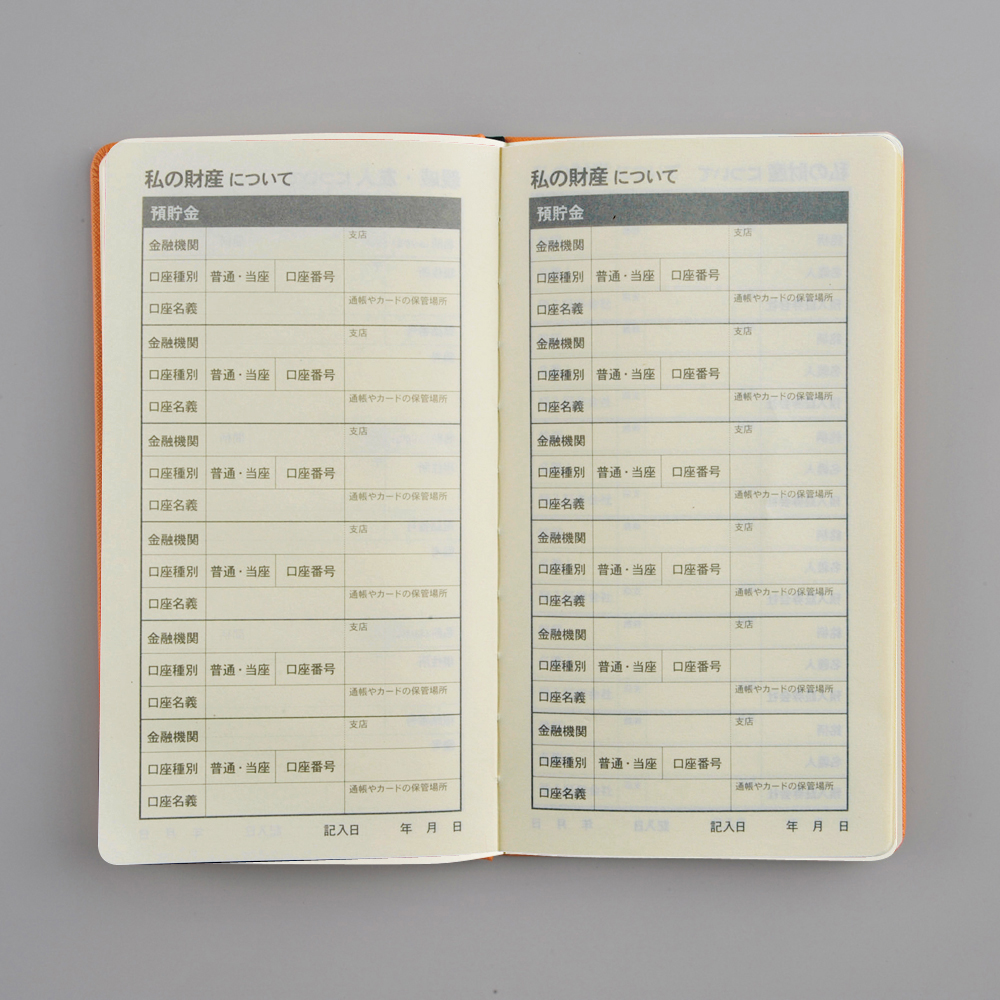 私の財産 について
預貯金
金融機関 支店
口座種別 普通・当座 口座番号
口座名義 通帳やカードの保管場所
金融機関 支店
口座種別 普通・当座 口座番号
口座名義 通帳やカードの保管場所
金融機関 支店
口座種別 普通・当座 口座番号
口座名義 通帳やカードの保管場所
金融機関 支店
口座種別 普通・当座 口座番号
口座名義 通帳やカードの保管場所
金融機関 支店
口座種別 普通・当座 口座番号
口座名義 通帳やカードの保管場所
金融機関 支店
口座種別 普通・当座 口座番号
口座名義 通帳やカードの保管場所
記入日 年 月 日
私の財産 について
預貯金
金融機関 支店
口座種別 普通・当座 口座番号
口座名義 通帳やカードの保管場所
金融機関 支店
口座種別 普通・当座 口座番号
口座名義 通帳やカードの保管場所
金融機関 支店
口座種別 普通・当座 口座番号
口座名義 通帳やカードの保管場所
金融機関 支店
口座種別 普通・当座 口座番号
口座名義 通帳やカードの保管場所
金融機関 支店
口座種別 普通・当座 口座番号
口座名義 通帳やカードの保管場所
金融機関 支店
口座種別 普通・当座 口座番号
口座名義 通帳やカードの保管場所
記入日 年 月 日